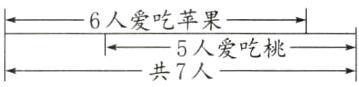 6人爱吃苹果
5人爱吃桃
共7人